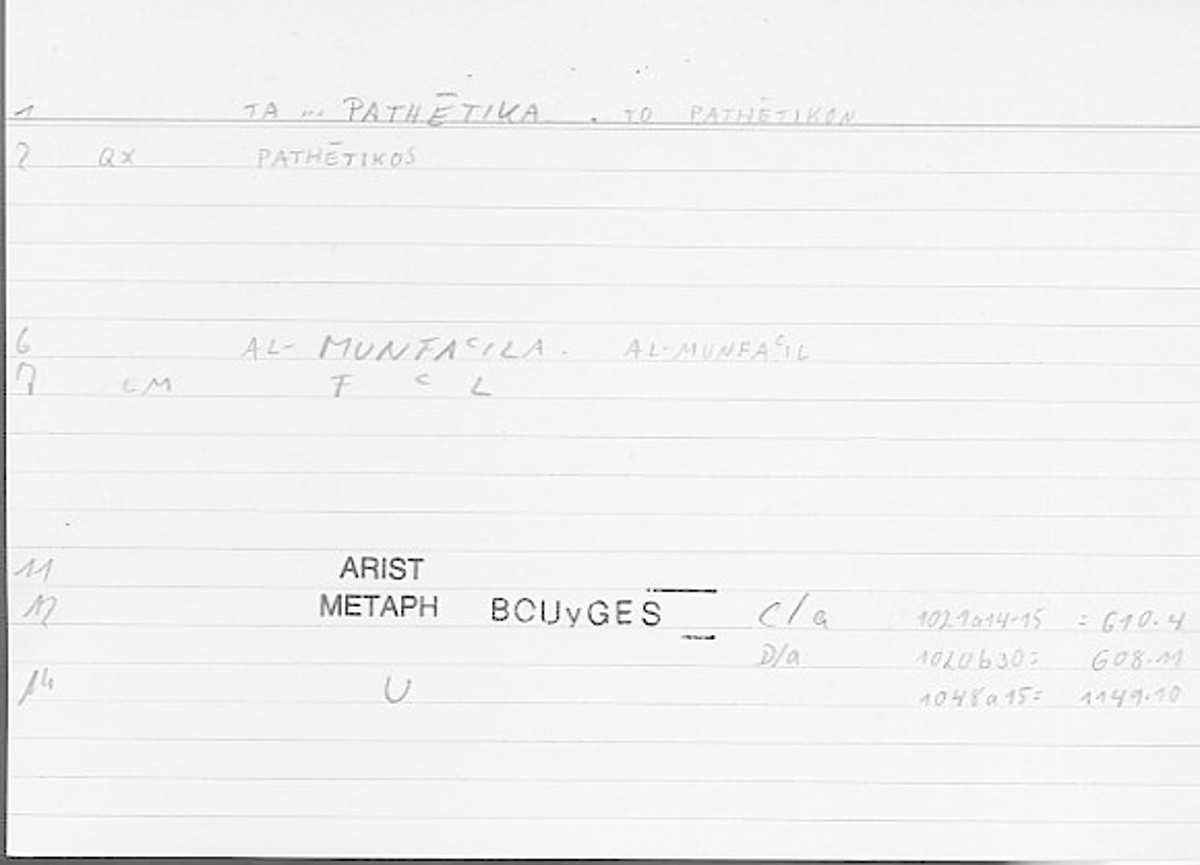 1 TA ... PATHĒTIKA . TO PATHĒTIKON
2 QX PATHĒTIKOS
6 AL- MUNFAᶜILA . AL-MUNFAᶜIL
7 CM F ᶜ L
11 ARIST
12 METAPH BCUyGES C/a 1021a14-15 = 610.4
D/a 1020b30= 608.11
14 U 1048a15= 1149.10